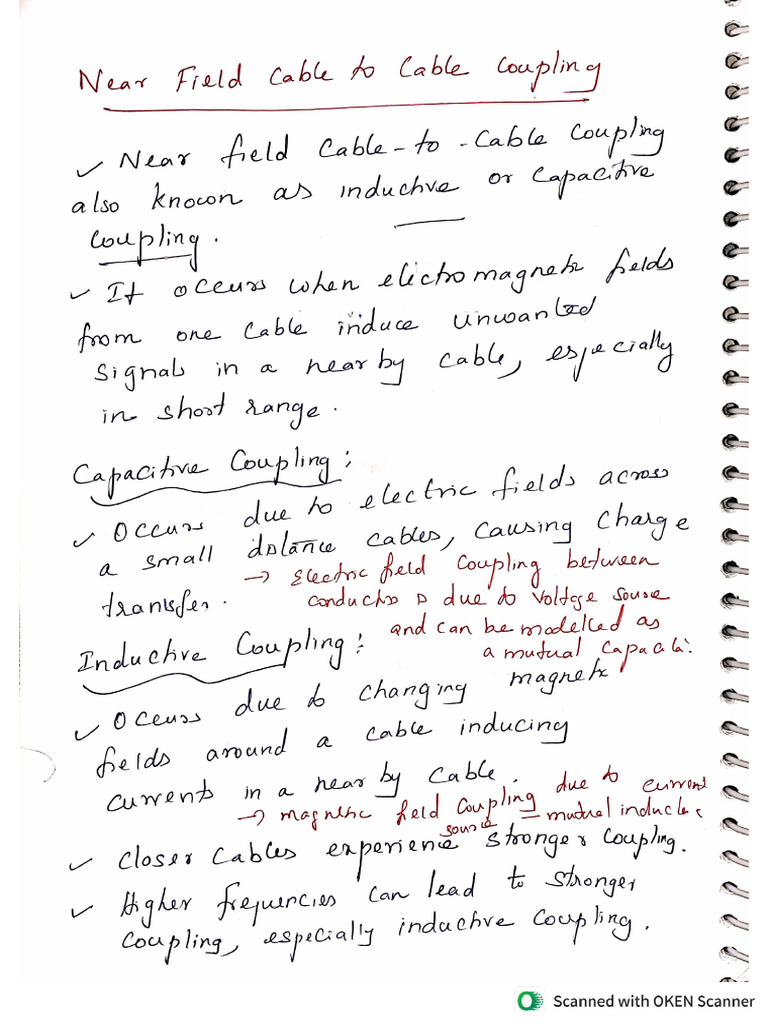 Near Field Cable to Cable Coupling
✓ Near field Cable-to-Cable Coupling
also known as inductive or Capacitive
Coupling.
✓ It occurs when electromagnetic fields
from one Cable induce unwanted
signals in a near by cable, especially
in short range.
Capacitive Coupling:
✓ Occurs due to electric fields across
a small distance cables, causing charge
transfer.
→ Electric field Coupling between
conductors due to Voltage source
and can be modelled as
a mutual Capaciti.
Inductive Coupling:
✓ Occurs due to changing magnetic
fields around a cable inducing
currents in a near by cable.
→ magnetic field Coupling due to current
source = mutual inductance
✓ Closer Cables experience stronger Coupling.
✓ Higher frequencies can lead to stronger
coupling, especially inductive coupling.
Scanned with OKEN Scanner